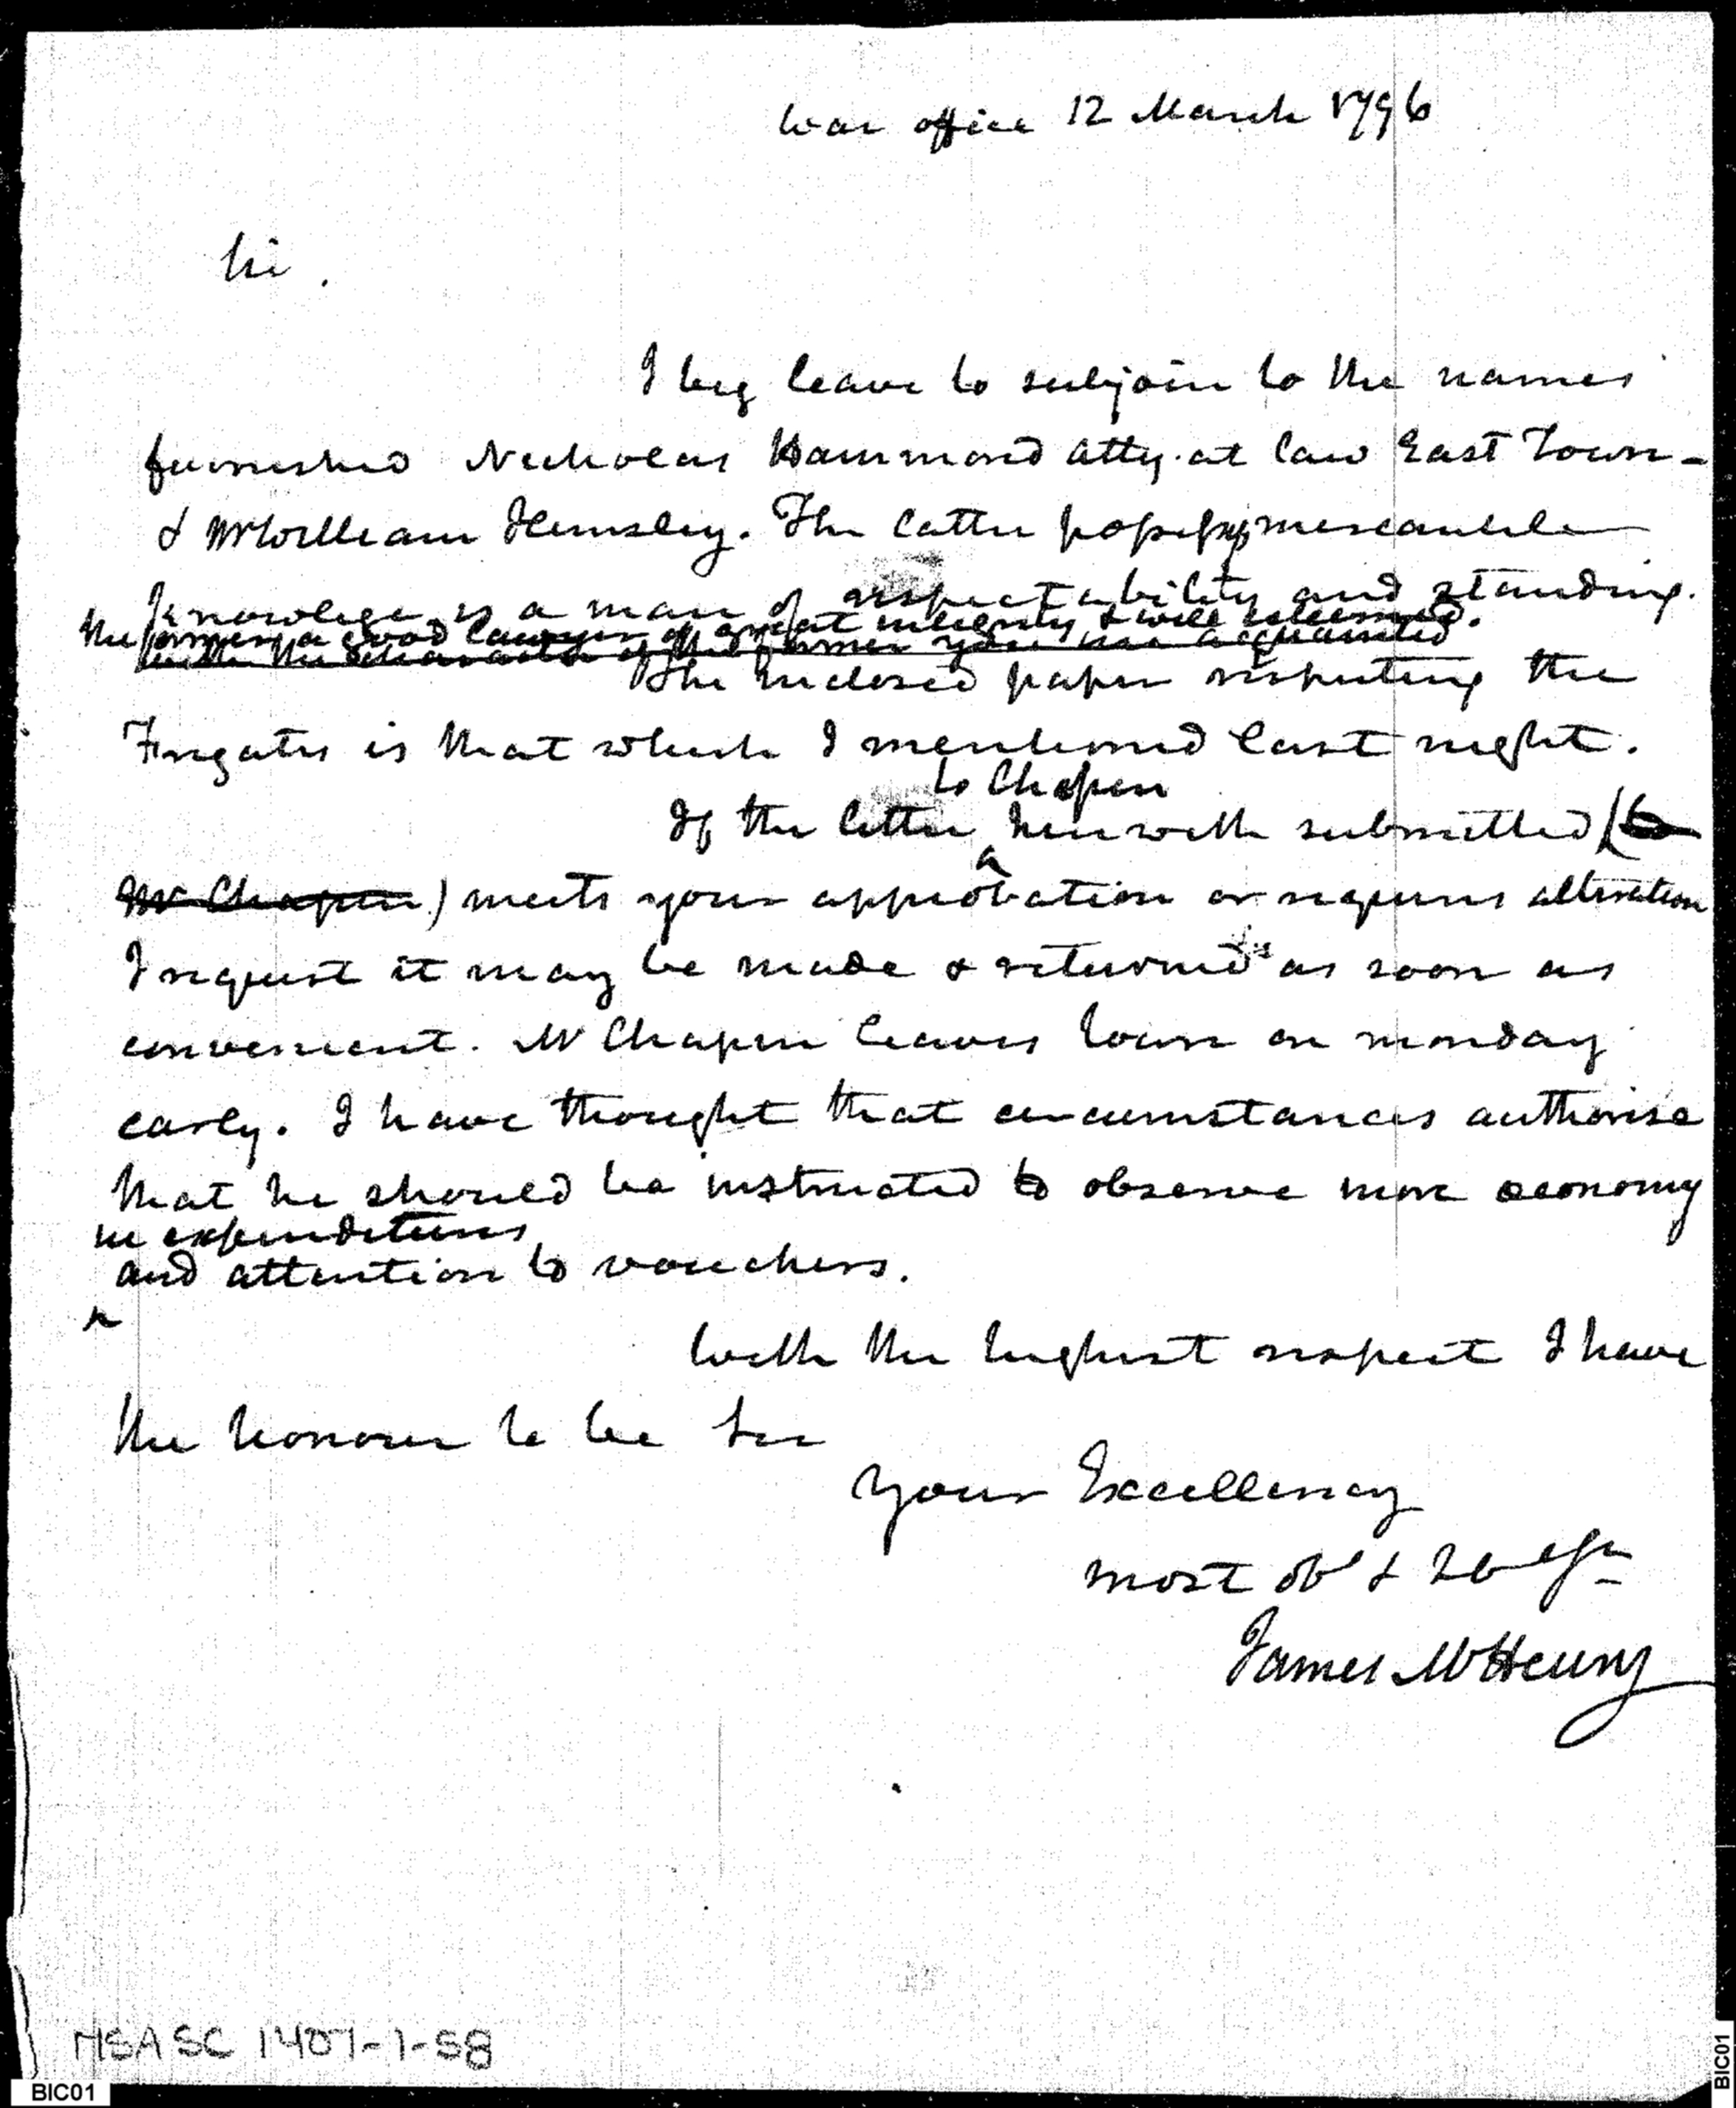 War office 12 March 1796
Sir.
I beg leave to subjoin to the names
furnished Nicholas Hammond atty. at law East Town -
& Mr William Hemsley. The latter possesses mercantile
knowlege is a man of respectability and standing.
the former a good lawyer of great integrity & well esteemed.
with the character of the former you are acquainted
The inclosed paper respecting the
Frigates is that which I mentioned last night.
to Chapin
If the letter herewith submitted (to
Mr Chapin) meets your approbation or requires alteration
I request it may be made & returned as soon as
convenient. Mr Chapin leaves town on monday
early. I have thought that circumstances authorise
that he should be instructed to observe more oeconomy
in expenditures
and attention to vouchers.
With the highest respect I have
the honour to be Sir
your Excellency
most obt &
James McHenry
MSA SC 1407-1-58
BIC01
BIC01